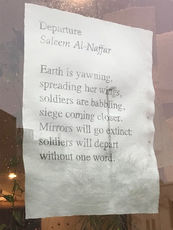 Departure
Saleem Al-Naffar
Earth is yawning,
spreading her wings,
soldiers are babbling,
siege coming closer.
Mirrors will go extinct:
soldiers will depart
without one word.